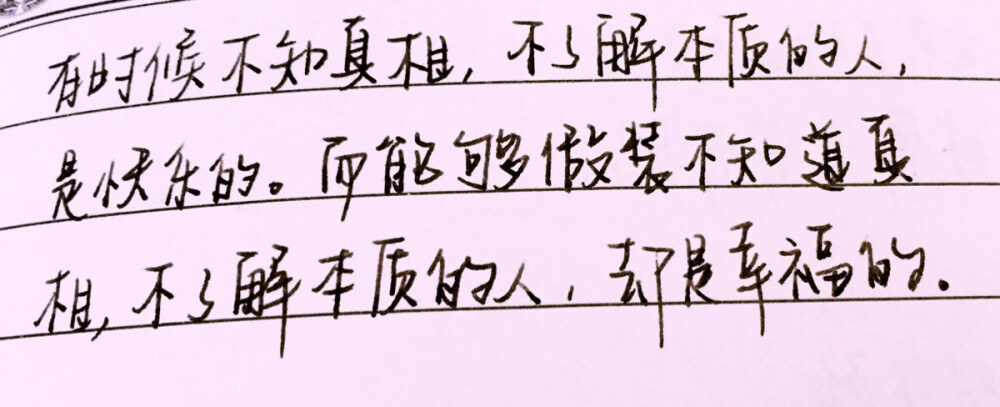 有时候不知真相，不了解本质的人，
是快乐的。而能够假装不知道真
相，不了解本质的人，却是幸福的.